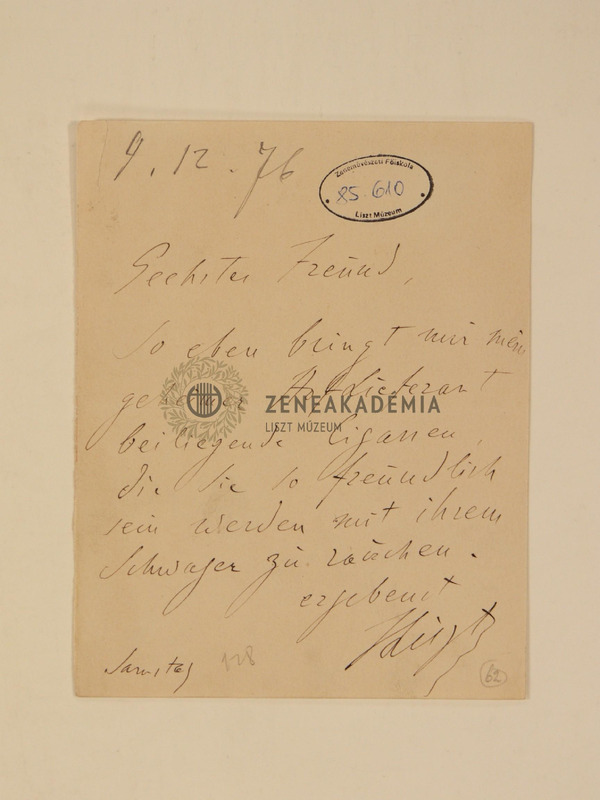 9.12.76
Zeneművészeti Főiskola
85.610
Liszt Múzeum
Geehrter Freund,
So eben bringt mir mein
Hoflieferant
ZENEAKADÉMIA
LISZT MÚZEUM
beiliegende Cigarren,
die Sie so freundlich
sein werden mit ihrem
Schwager zu rauchen.
ergebenst
FLiszt
Samstag
128
62